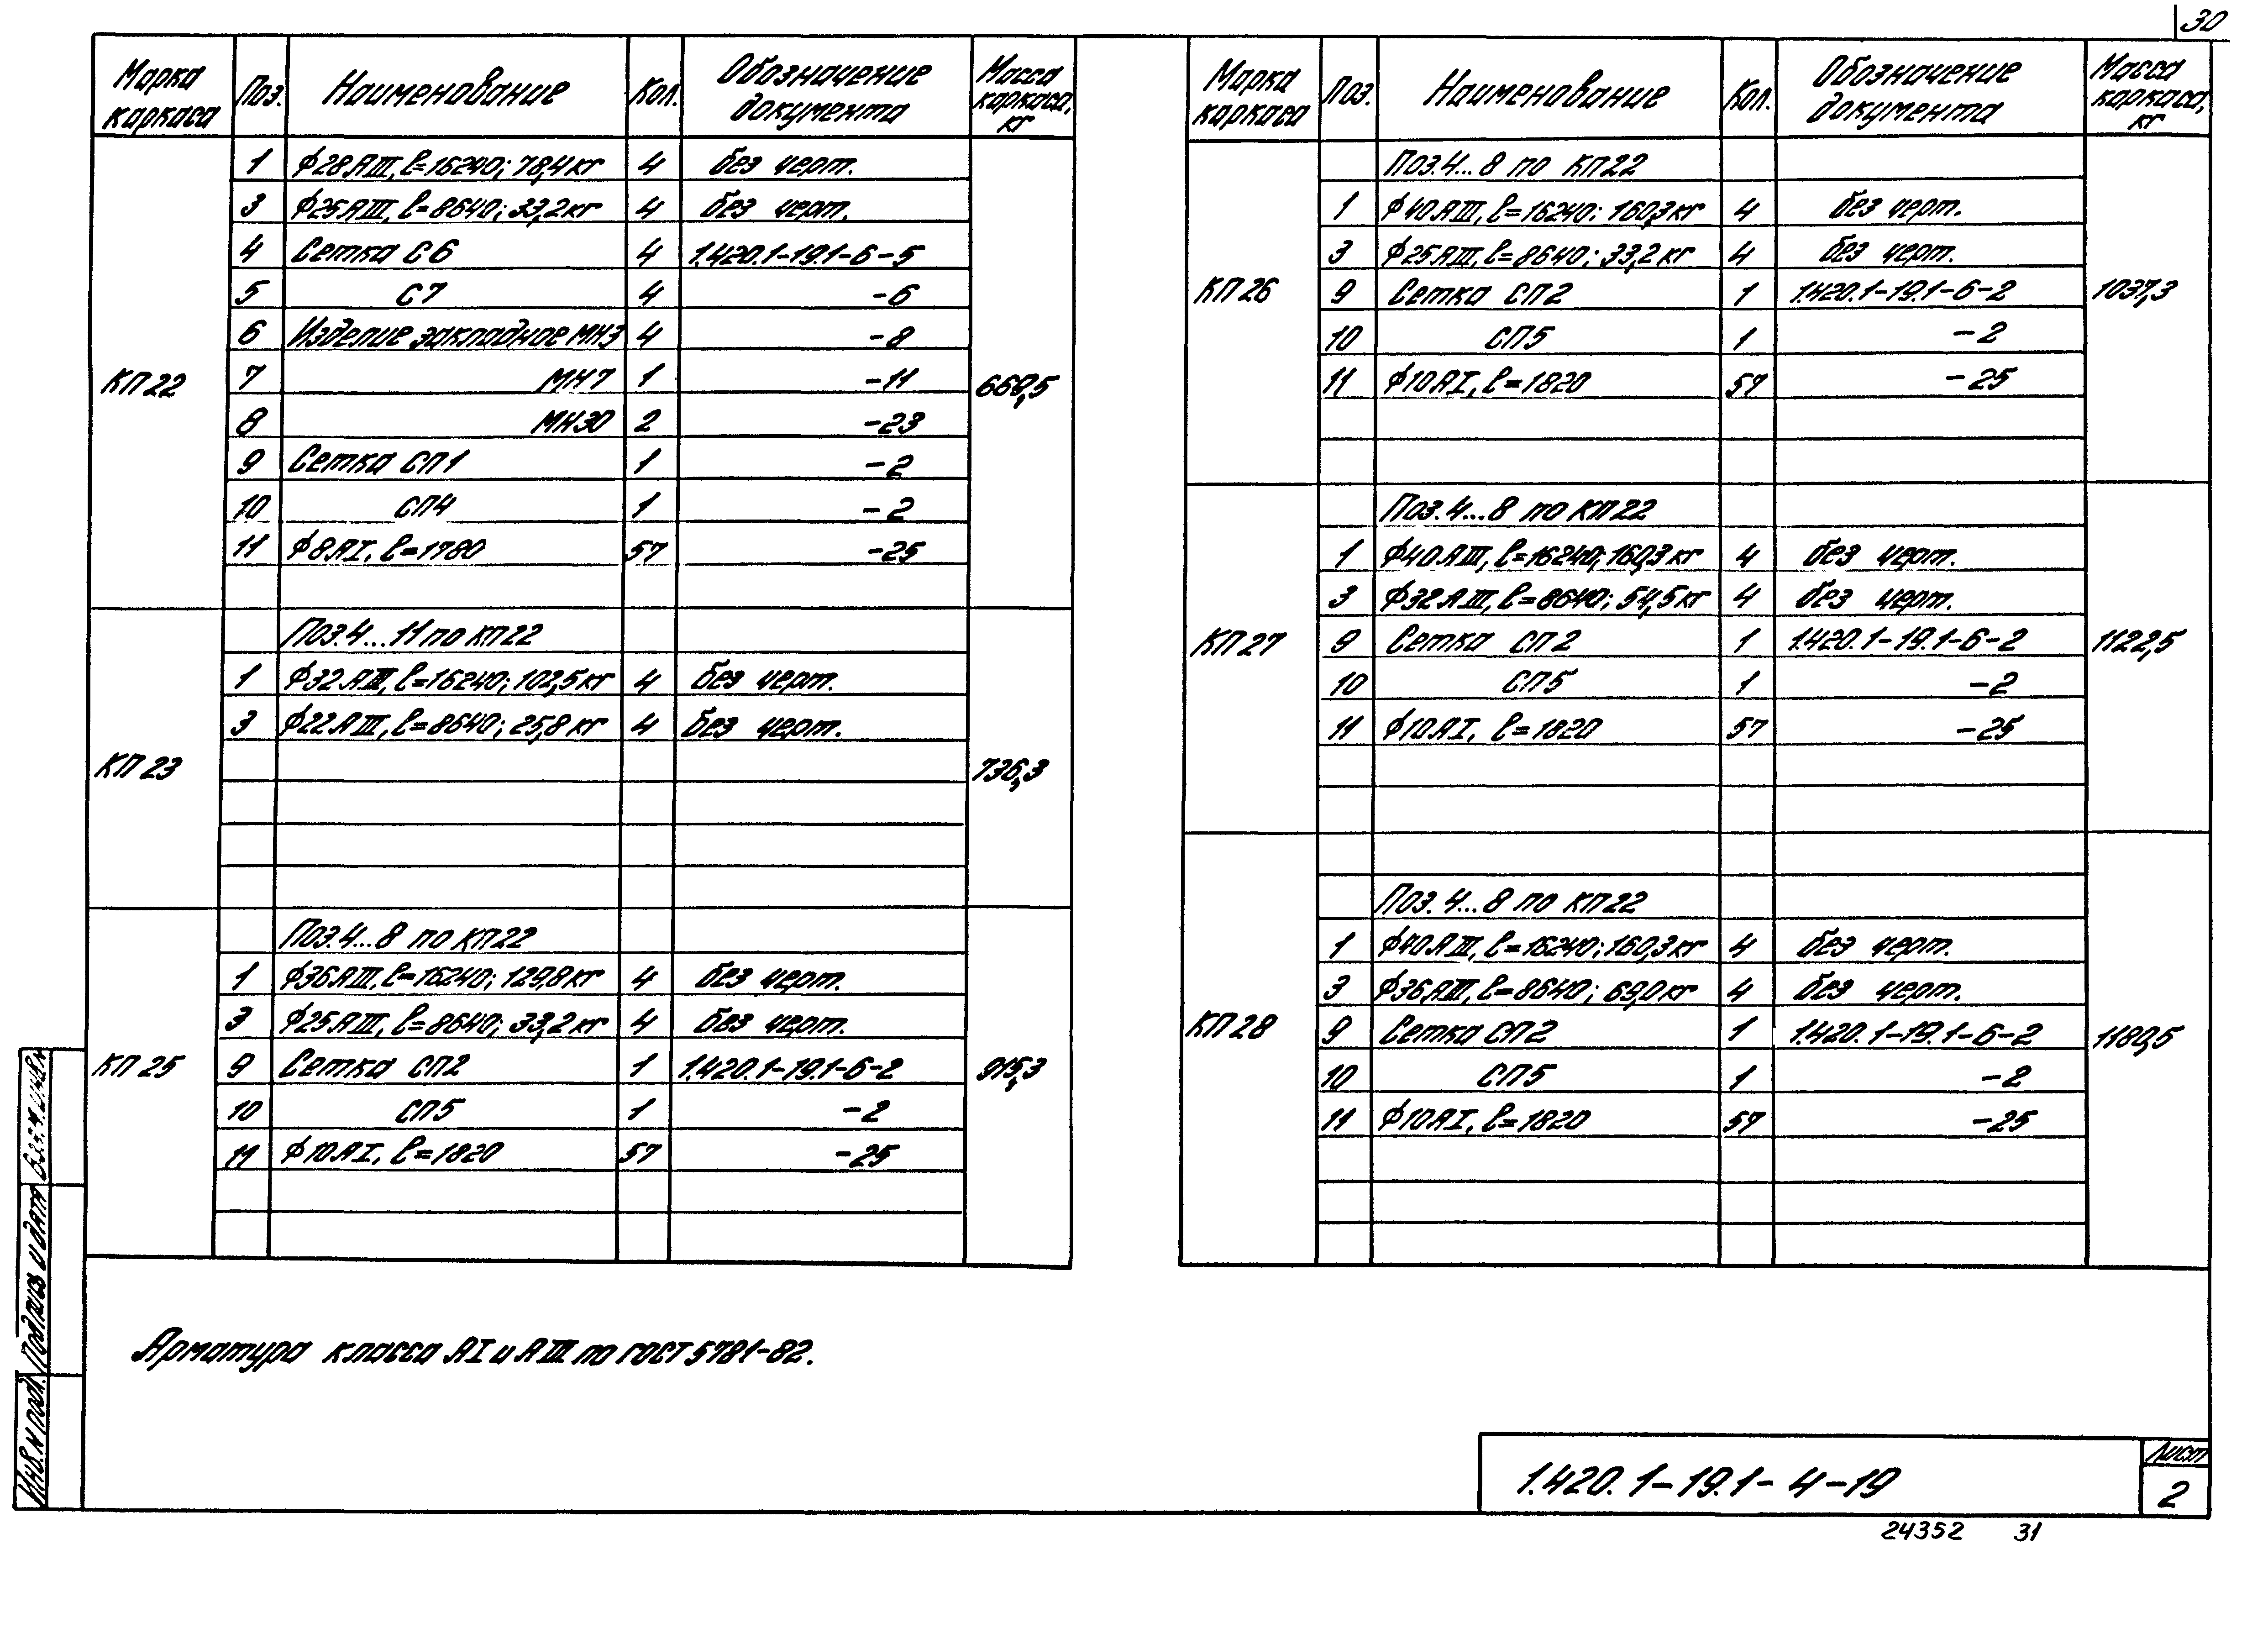 30
Марка каркаса Поз. Наименование Кол. Обозначение документа Масса каркаса, кг
КП22
1 ϕ28АIII, ℓ=16240; 78,4кг 4 без черт.
3 ϕ25АIII, ℓ=8640; 33,2кг 4 без черт.
4 Сетка С6 4 1.420.1-19.1-6-5
5 С7 4 -6
6 Изделие закладное МН3 4 -8
7 МН7 1 -11
8 МН30 2 -23
9 Сетка СП1 1 -2
10 СП4 1 -2
11 ϕ8АI, ℓ=1780 57 -25
КП23 736,3
Поз.4...11 по КП22
1 ϕ32АIII, ℓ=16240; 102,5кг 4 без черт.
3 ϕ22АIII, ℓ=8640; 25,8кг 4 без черт.
КП25 915,3
Поз.4...8 по КП22
1 ϕ36АIII, ℓ=16240; 129,8кг 4 без черт.
3 ϕ25АIII, ℓ=8640; 33,2кг 4 без черт.
9 Сетка СП2 1 1.420.1-19.1-6-2
10 СП5 1 -2
11 ϕ10АI, ℓ=1820 57 -25
Марка каркаса Поз. Наименование Кол. Обозначение документа Масса каркаса, кг
КП26 1037,3
Поз.4...8 по КП22
1 ϕ40АIII, ℓ=16240; 160,3кг 4 без черт.
3 ϕ25АIII, ℓ=8640; 33,2кг 4 без черт.
9 Сетка СП2 1 1.420.1-19.1-6-2
10 СП5 1 -2
11 ϕ10АI, ℓ=1820 57 -25
КП27 1122,5
Поз.4...8 по КП22
1 ϕ40АIII, ℓ=16240; 160,3кг 4 без черт.
3 ϕ32АIII, ℓ=8640; 54,5кг 4 без черт.
9 Сетка СП2 1 1.420.1-19.1-6-2
10 СП5 1 -2
11 ϕ10АI, ℓ=1820 57 -25
КП28 1180,5
Поз.4...8 по КП22
1 ϕ40АIII, ℓ=16240; 160,3кг 4 без черт.
3 ϕ36АIII, ℓ=8640; 69,0кг 4 без черт.
9 Сетка СП2 1 1.420.1-19.1-6-2
10 СП5 1 -2
11 ϕ10АI, ℓ=1820 57 -25
Арматура класса АI и АIII по ГОСТ 5781-82.
Инв.N подл. Подпись и дата Взам.инв.N
1.420.1-19.1-4-19
Лист
2
24352 31